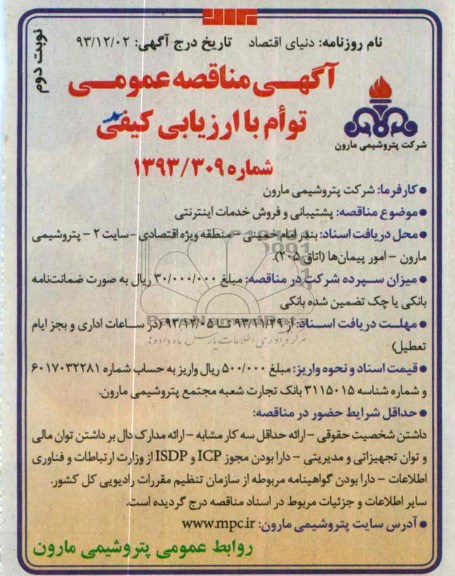 نام روزنامه: دنیای اقتصاد   تاریخ درج آگهی: ۹۳/۱۲/۰۲
نوبت دوم
آگهی مناقصه عمومی
توأم با ارزیابی کیفی
شماره ۱۳۹۳/۳۰۹
شرکت پتروشیمی مارون
● کارفرما: شرکت پتروشیمی مارون
● موضوع مناقصه: پشتیبانی و فروش خدمات اینترنتی
● محل دریافت اسناد: بندر امام خمینی - منطقه ویژه اقتصادی - سایت ۲ - پتروشیمی
مارون - امور پیمان‌ها (اتاق ۲۰۵).
● میزان سپرده شرکت در مناقصه: مبلغ ۳۰/۰۰۰/۰۰۰ ریال به صورت ضمانت‌نامه
بانکی یا چک تضمین شده بانکی
● مهلت دریافت اسناد: از ۹۳/۱۱/۲۹ الی ۹۳/۱۲/۰۵ (در ساعات اداری و بجز ایام
تعطیل)
● قیمت اسناد و نحوه واریز: مبلغ ۵۰۰/۰۰۰ ریال واریز به حساب شماره ۶۰۱۷۰۳۲۲۸۱
و شماره شناسه ۳۱۱۵۰۱۵ بانک تجارت شعبه مجتمع پتروشیمی مارون.
● حداقل شرایط حضور در مناقصه:
داشتن شخصیت حقوقی - ارائه حداقل سه کار مشابه - ارائه مدارک دال بر داشتن توان مالی
و توان تجهیزاتی و مدیریتی - دارا بودن مجوز ICP و ISDP از وزارت ارتباطات و فناوری
اطلاعات - دارا بودن گواهینامه مربوطه از سازمان تنظیم مقررات رادیویی کل کشور.
سایر اطلاعات و جزئیات مربوط در اسناد مناقصه درج گردیده است.
● آدرس سایت پتروشیمی مارون: www.mpc.ir
روابط عمومی پتروشیمی مارون